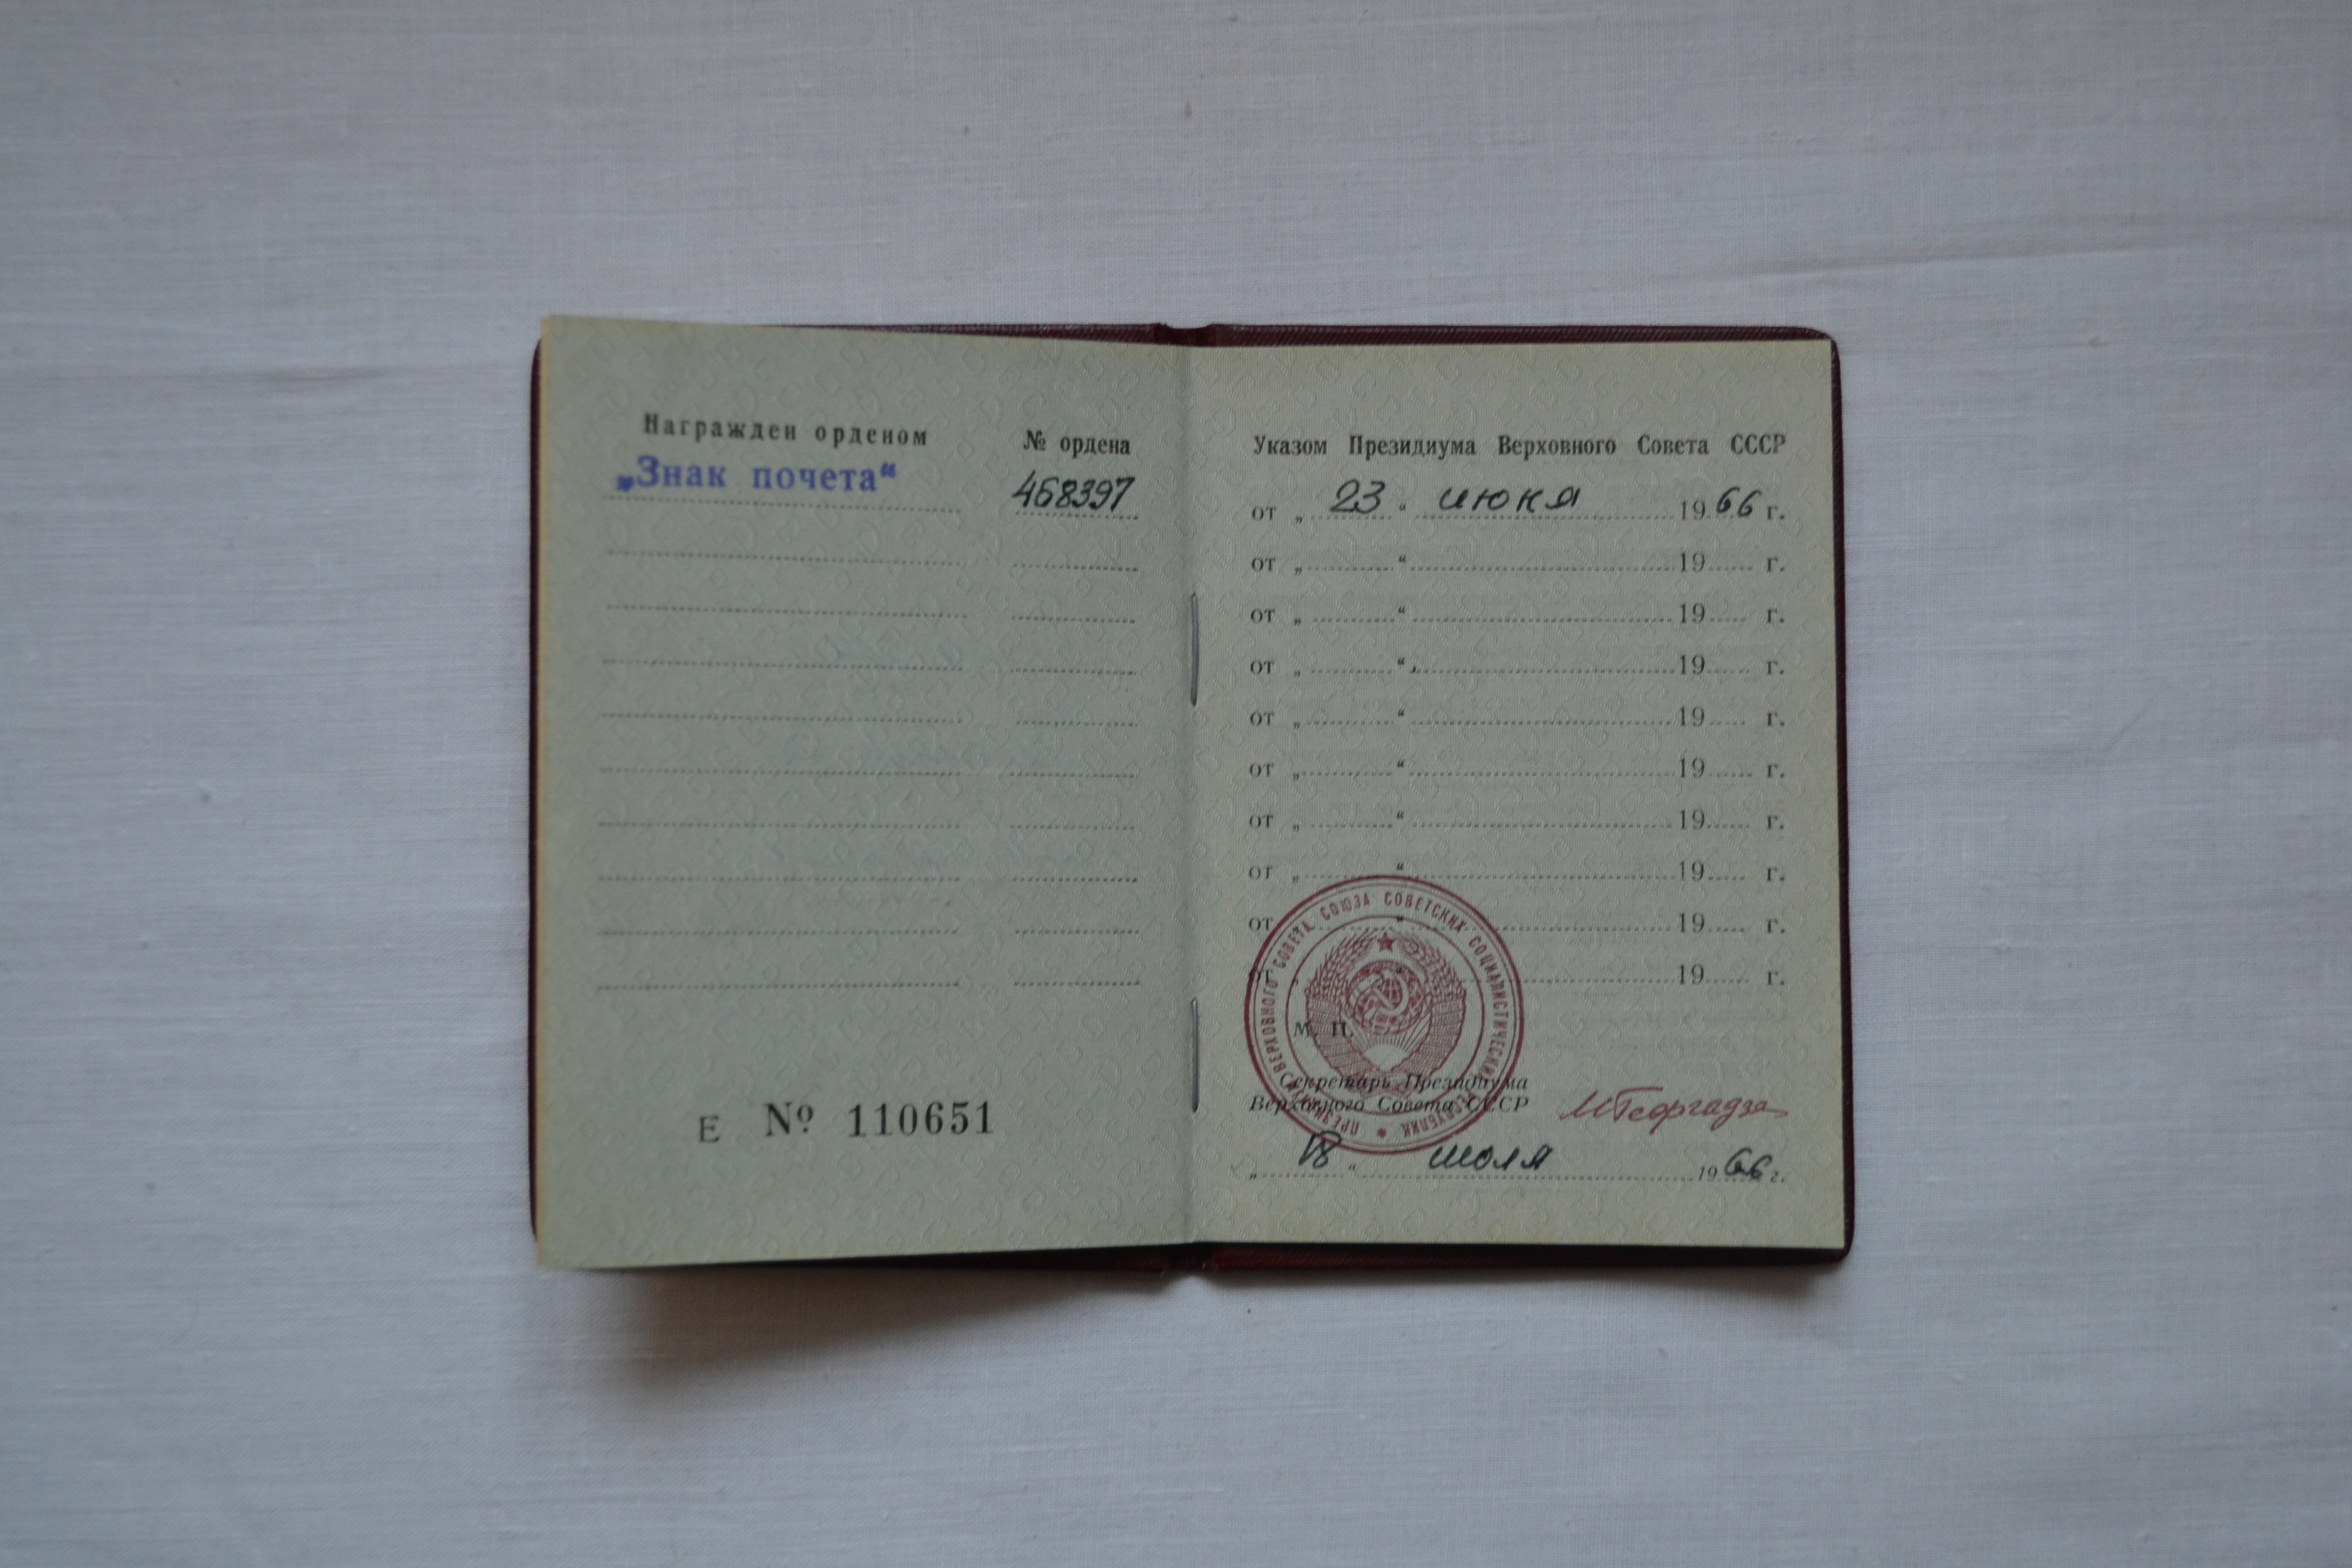 Награжден орденом
№ ордена
„Знак почета“
468397
Е № 110651
Указом Президиума Верховного Совета СССР
от „ 23 “ июня 1966 г.
от „ “ 19 г.
от „ “ 19 г.
от „ “ 19 г.
от „ “ 19 г.
от „ “ 19 г.
от „ “ 19 г.
от „ “ 19 г.
от „ “ 19 г.
от „ “ 19 г.
ПРЕЗИДИУМ ВЕРХОВНОГО СОВЕТА СОЮЗА СОВЕТСКИХ СОЦИАЛИСТИЧЕСКИХ РЕСПУБЛИК
М. П.
Секретарь Президиума
Верховного Совета СССР
МГеоргадзе
„ 18 “ июля 1966 г.